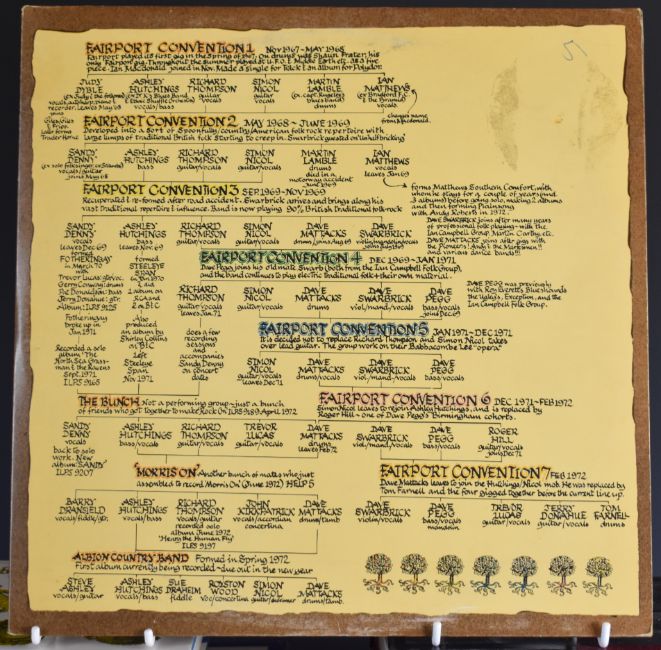 FAIRPORT CONVENTION 1 NOV 1967~MAY 1968
Fairport played its first gig in the Spring of 1967. Drums was Shaun Frater, his
only Fairport gig. Throughout the summer played at U.F.O. & Middle Earth etc. as a five
piece. Ian Macdonald joined in Nov. Made a single for Track & an album for Polydor.
JUDY DYBLE
ASHLEY HUTCHINGS
RICHARD THOMPSON
SIMON NICOL
MARTIN LAMBLE
IAN MATTHEWS
vocals/bass
guitar vocals
guitar vocals
drums
vocals
changes name
from Macdonald.
FAIRPORT CONVENTION 2 MAY 1968 ~ JUNE 1969
Developed into a sort of Spoonfully country/American folk rock repertoire with
large lumps of traditional British folk starting to creep in. Swarbrick guested on 'Unhalfbricking'
SANDY DENNY
ASHLEY HUTCHINGS
RICHARD THOMPSON
SIMON NICOL
MARTIN LAMBLE
IAN MATTHEWS
(ex solo folksinger, ex Strawbs)
vocals/guitar
joins May 68
bass/vocals
guitar/vocals
guitar/vocals
drums
died in a
motorway accident
June 1969
vocals
leaves Jan 69
FAIRPORT CONVENTION 3 SEP. 1969~NOV 1969
Recuperated & re-formed after road accident. Swarbrick arrives and brings along his
vast traditional repertoire & influence. Band is now playing 90% British Traditional folk rock
forms Matthews Southern Comfort, with
whom he plays for a couple of years (and
3 albums) before going solo, making 2 albums
and then forming Plainsong
with Andy Roberts in 1972.
DAVE SWARBRICK joins after many years
of professional folk playing - with the
Ian Campbell Group, Martin Carthy, etc.
DAVE MATTACKS joins after gigs with
the Pioneers! Andy & the Marksmen!!
and various dance bands!!!
SANDY DENNY
ASHLEY HUTCHINGS
RICHARD THOMPSON
SIMON NICOL
DAVE MATTACKS
DAVE SWARBRICK
vocals
leaves Dec 69
bass
leaves Nov 69
guitar/vocals
guitar/vocals
drums, joins Aug 69
joins July 69
FAIRPORT CONVENTION 4 DEC 1969~JAN 1971
Dave Pegg joins his old mate Swarb (both from the Ian Campbell Folk Group),
and the band continues to play electric traditional folk + their own material.
formed
FOTHERINGAY
in March 70
with
Trevor Lucas: gtr/voc.
Gerry Conway: drums
Pat Donaldson: bass
Jerry Donahue: gtr.
Album: ILPS 9125
formed
STEELEYE
SPAN
in Jan 1970
& did
1 album on
RCA and
2 on B&C
RICHARD THOMPSON
SIMON NICOL
DAVE MATTACKS
DAVE SWARBRICK
DAVE PEGG
guitar/vocals
leaves Jan 71
guitar/vocals
drums
viol/mand/vocals
bass/vocals
joins Dec 69
DAVE PEGG was previously
with Roy Everetts Blueshounds
the Uglys, Exception, and the
Ian Campbell Folk Group.
FAIRPORT CONVENTION 5 JAN 1971~DEC 1971
It is decided not to replace Richard Thompson and Simon Nicol takes
over lead guitar. The group work on their Babbacombe Lee "opera"
Fotheringay
broke up in
Jan 1971
Recorded a solo
album 'The
North Sea Grass-
man & the Ravens
Sept. 1971
ILPS 9165
Also
produced
an album by
Shirley Collins
on B&C
Left
Steeleye
Span
Nov. 1971
does a few
recording
sessions
and
accompanies
Sandy Denny
on concert
dates
SIMON NICOL
DAVE MATTACKS
DAVE SWARBRICK
DAVE PEGG
guitar/vocals
leaves Dec 71
drums
viol/mand/vocals
bass/vocals
THE BUNCH Not a performing group - just a bunch
of friends who got together to make Rock On ILPS 9189 April 1972
FAIRPORT CONVENTION 6 DEC 1971~FEB 1972
Simon Nicol leaves to rejoin Ashley Hutchings, and is replaced by
Roger Hill - one of Dave Pegg's Birmingham cohorts.
SANDY DENNY
ASHLEY HUTCHINGS
RICHARD THOMPSON
TREVOR LUCAS
DAVE MATTACKS
DAVE SWARBRICK
DAVE PEGG
ROGER HILL
vocals
bass/vocals
guitar/vocals
guitar/vocals
drums
leaves Feb 72
viol/mand/vocals
bass/vocals
guitar/vocals
joins Dec 71
back to solo
work. New
album: 'SANDY'
ILPS 9207
'MORRIS ON' Another bunch of mates who just
assembled to record Morris On (June 1972) HELP 5
FAIRPORT CONVENTION 7 FEB 1972
Dave Mattacks leaves to join the Hutchings/Nicol mob. He was replaced by
Tom Farnell and the four gigged together before the current line up.
BARRY DRANSFIELD
ASHLEY HUTCHINGS
RICHARD THOMPSON
JOHN KIRKPATRICK
DAVE MATTACKS
DAVE SWARBRICK
DAVE PEGG
TREVOR LUCAS
JERRY DONAHUE
TOM FARNELL
vocals/fiddle/gtr.
vocals/bass
vocals/guitar
vocals/accordion
concertina
drums/tamb.
violin/vocals
bass/vocals
mandolin
guitar/vocals
guitar/vocals
drums
recorded solo
album (June 1972)
'Henry the Human Fly'
ILPS 9197
ALBION COUNTRY BAND Formed in Spring 1972
First album currently being recorded - due out in the new year
STEVE ASHLEY
ASHLEY HUTCHINGS
SUE DRAHEIM
ROYSTON WOOD
SIMON NICOL
DAVE MATTACKS
vocals/guitar
vocals/bass
fiddle
voc/concertina
guitar/dulcimer
drums/tamb.